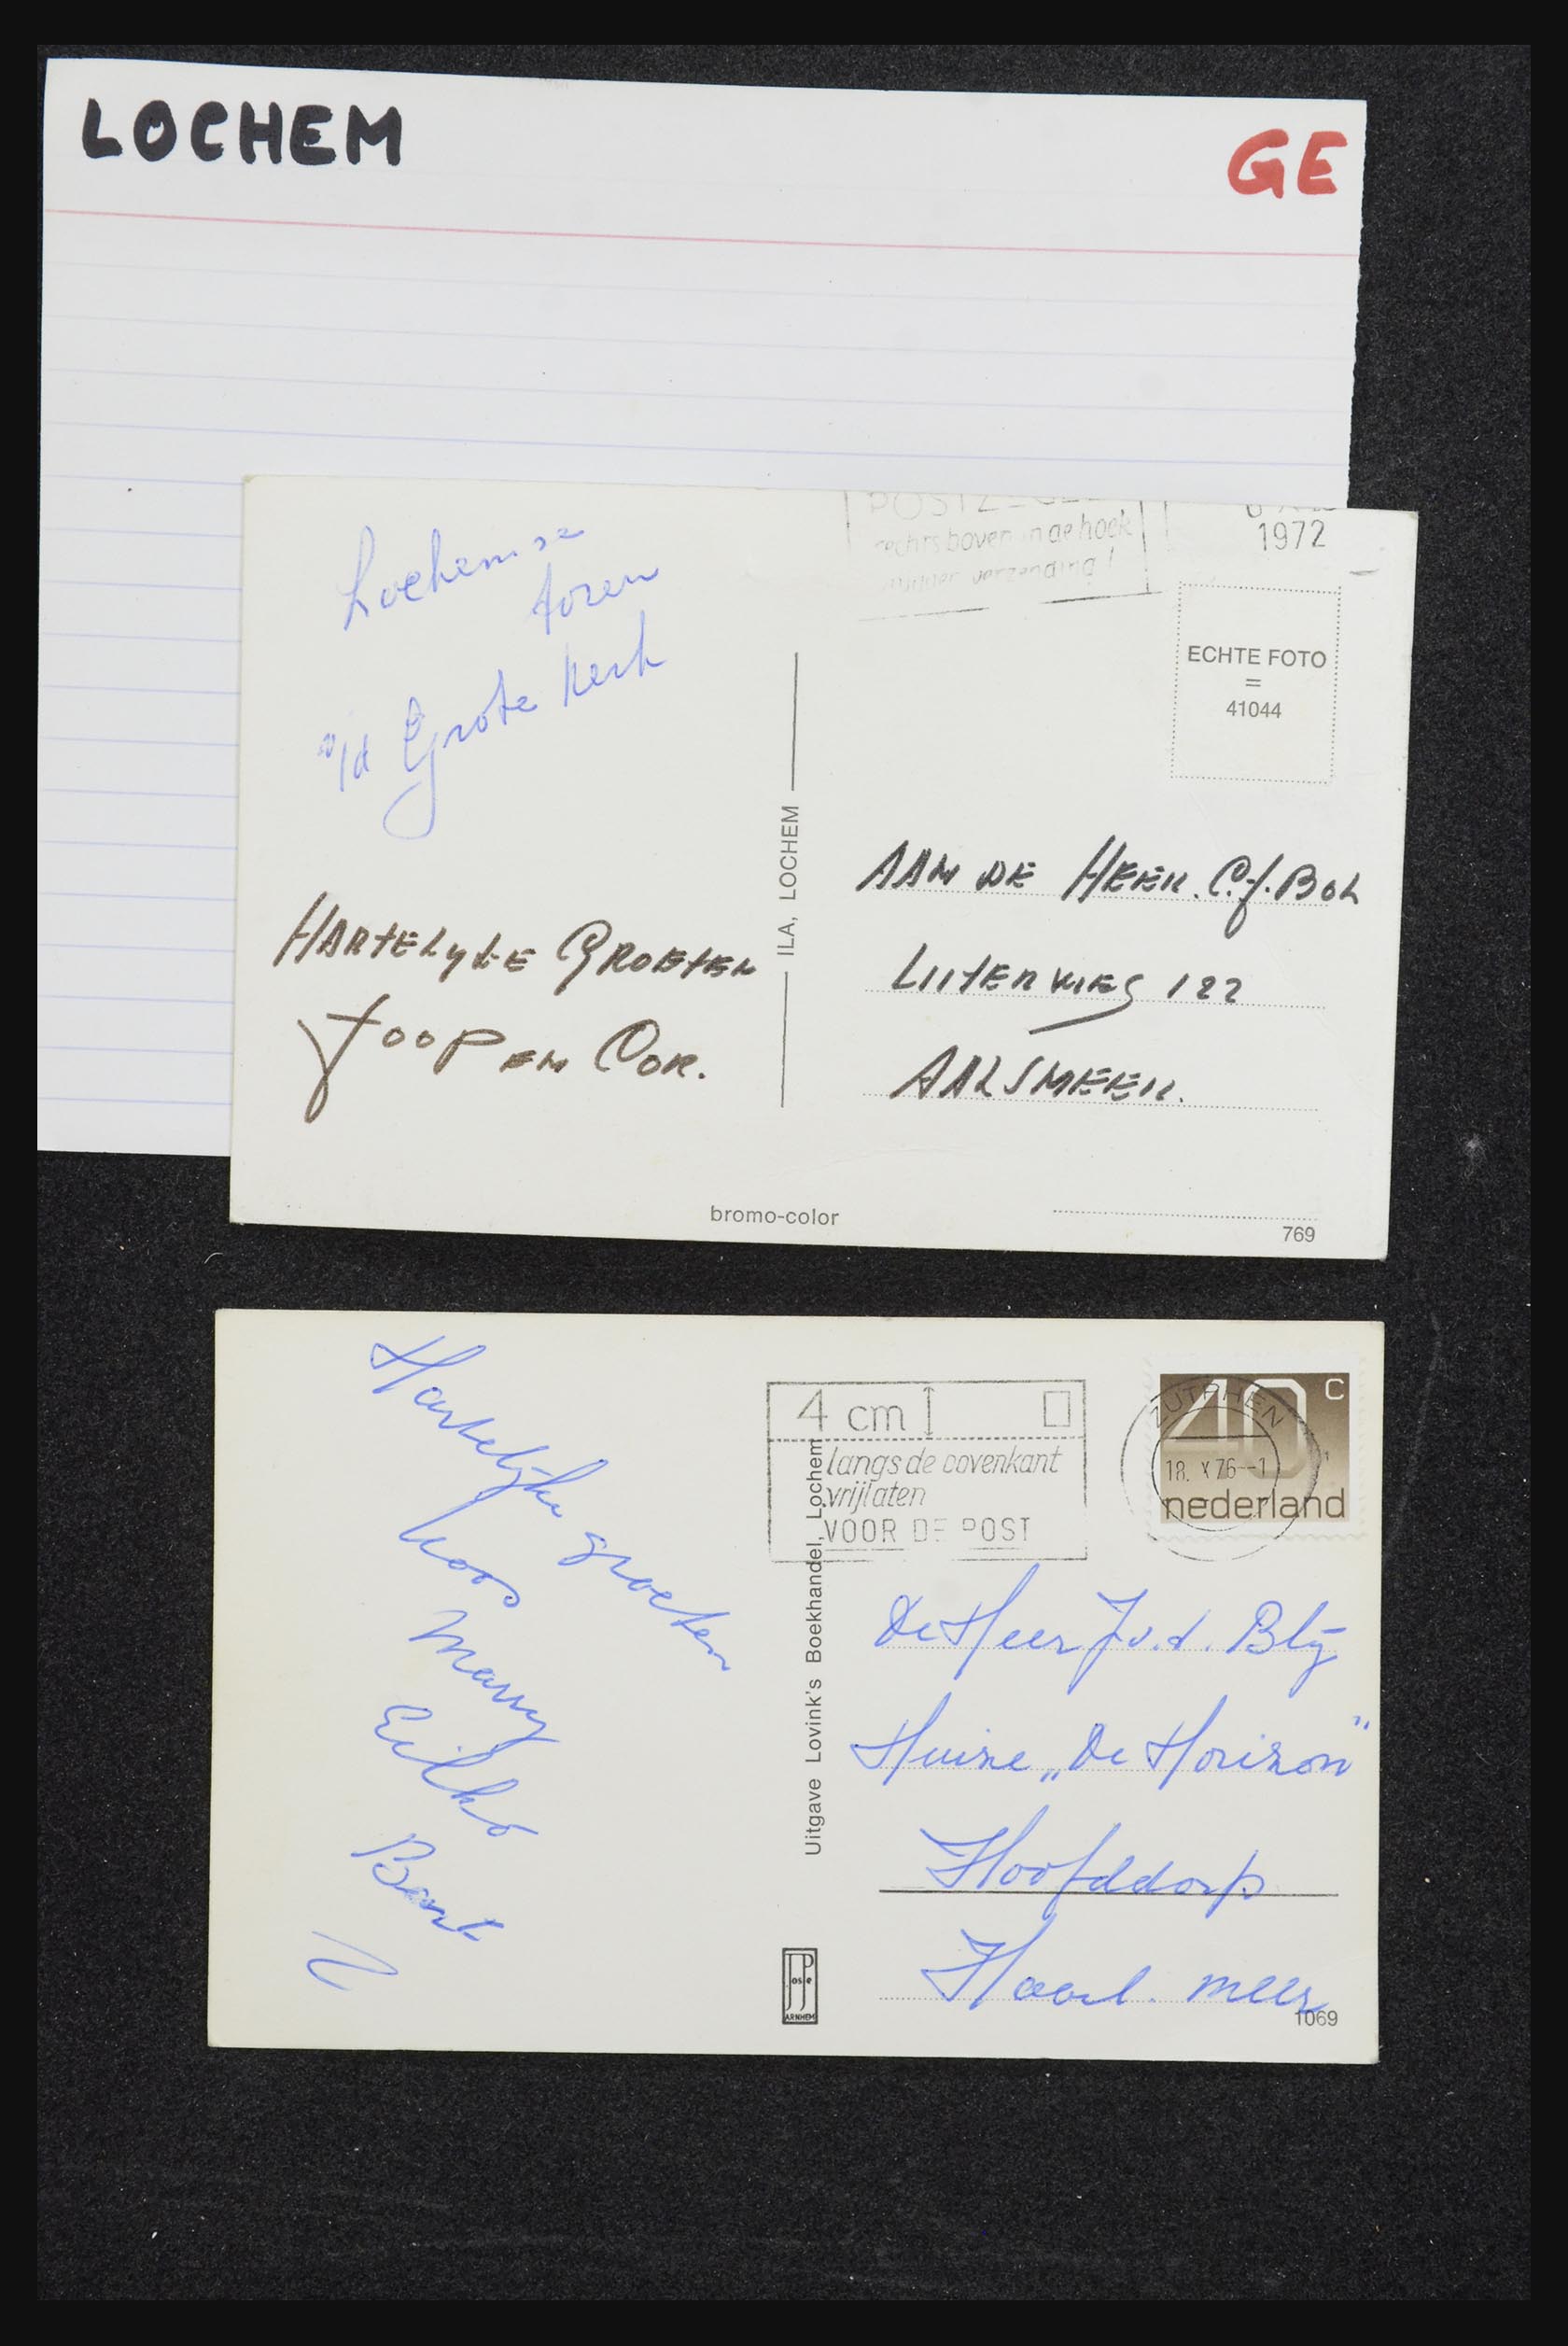 LOCHEM
GE
Lochemse
toren
v/d Grote Kerk
rechts boven in de hoek
1972
ECHTE FOTO
=
41044
ILA, LOCHEM
HARTELYKE GROETEN
JOOP EN COR.
AAN DE HEER. C.J. BOL
UITERWEG 122
AALSMEER.
bromo-color
769
Hartelijke groeten
Koos
Manny
Eilko
Bart
4 cm
langs de bovenkant
vrijlaten
VOOR DE POST
ZUTPHEN
18. X 76--1
40 c
nederland
Uitgave Lovink's Boekhandel, Lochem
De Heer J v.d. Blij
Huize „De Horizon"
Hoofddorp
Haarl. meer
JosPe
ARNHEM
1069